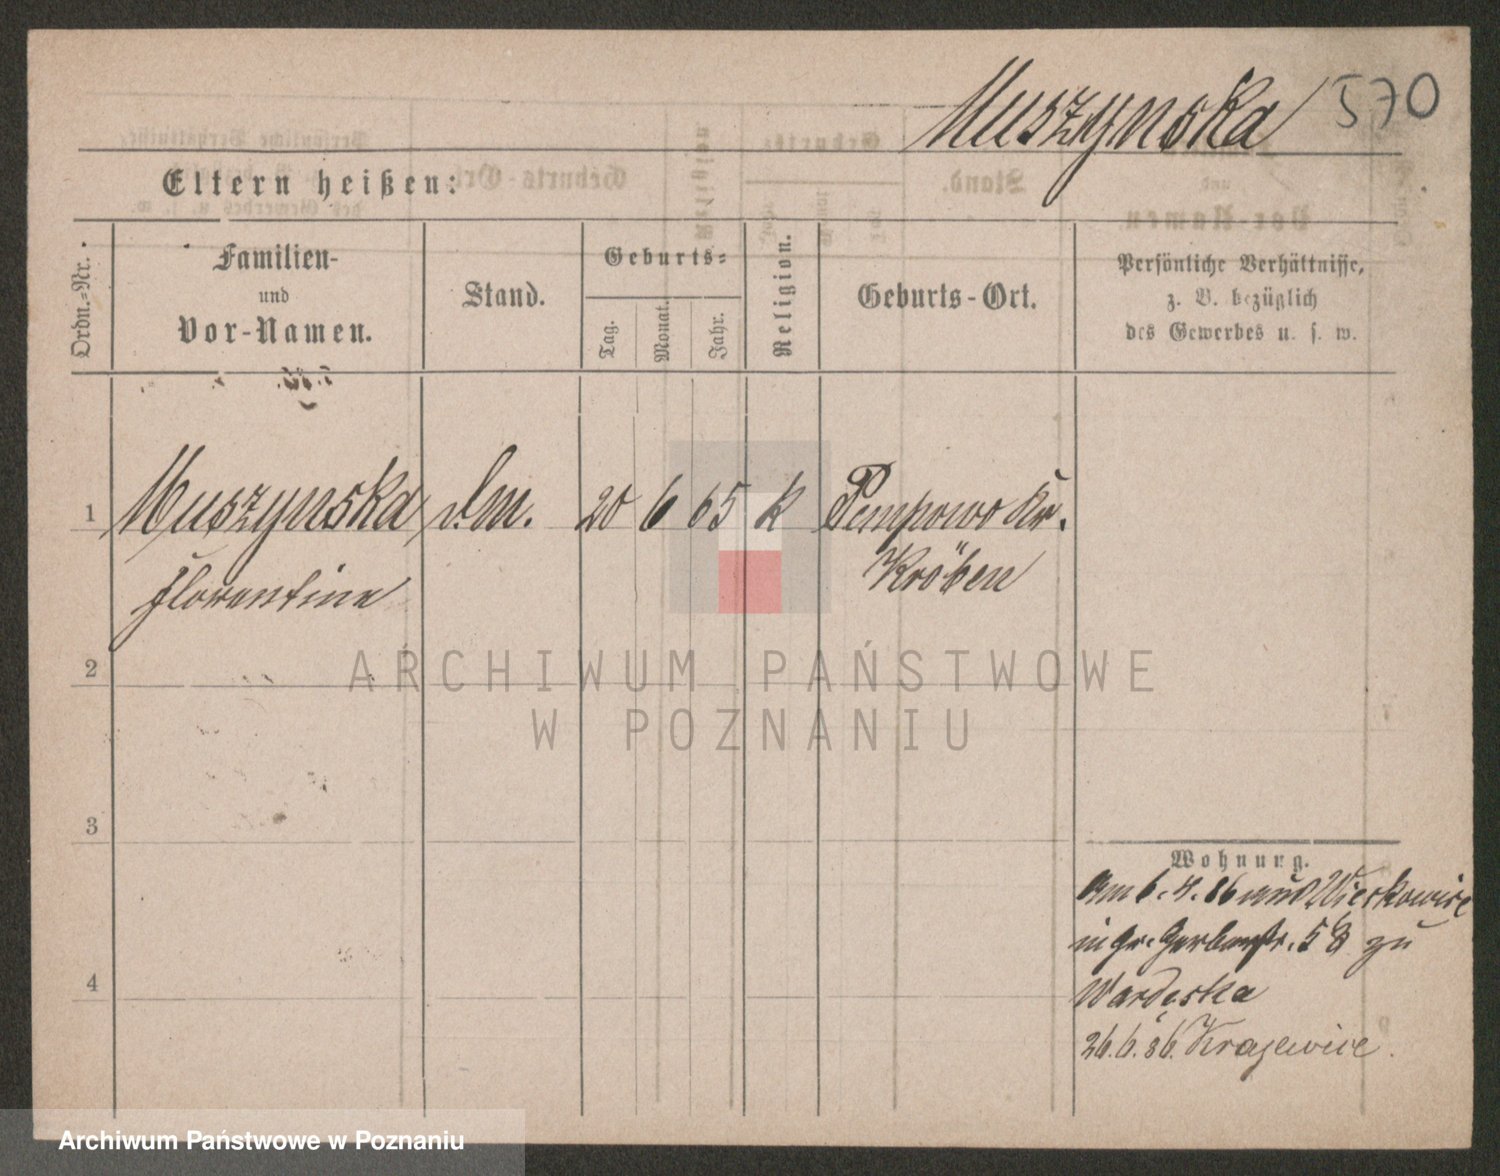 Muszynska 570
Eltern heißen:
Ordn.=Nr.
Familien-
und
Vor-Namen.
Stand.
Geburts=
Tag.
Monat.
Jahr.
Religion.
Geburts-Ort.
Persönliche Verhältnisse,
z. B. bezüglich
des Gewerbes u. s. w.
1 Muszynska 20 6 65 k Pempowo Kr.
Florentine Kröben
2
3
4
Wohnung.
Am 6.4.86 aus
in Gr. Gerberstr. 58 zu
Wardeska
26.6.86. Krajewice.
ARCHIWUM PAŃSTWOWE
W POZNANIU
Archiwum Państwowe w Poznaniu